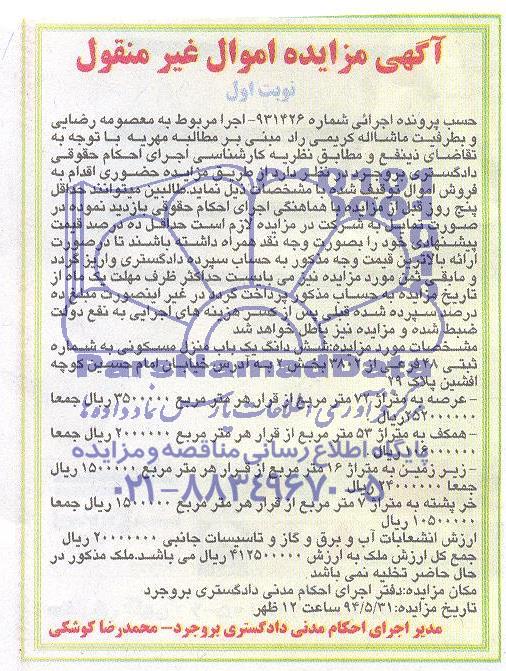 آگهی مزایده اموال غیر منقول
نوبت اول
حسب پرونده اجرائی شماره ۹۳۱۴۲۶- اجرا مربوط به معصومه رضایی
و بطرفیت ماشااله کریمی راد مبنی بر مطالبه مهریه با توجه به
تقاضای ذینفع و مطابق نظریه کارشناسی اجرای احکام حقوقی
دادگستری بروجرد در نظر دارد از طریق مزایده حضوری اقدام به
فروش اموال توقیف شده با مشخصات ذیل نماید.طالبین میتوانند حداقل
پنج روز قبل از مزایده با هماهنگی اجرای احکام حقوقی بازدید نموده در
صورت تمایل به شرکت در مزایده لازم است حداقل ده درصد قیمت
پیشنهادی خود را بصورت وجه نقد همراه داشته باشند تا در صورت
ارائه بالاترین قیمت وجه مذکور به حساب سپرده دادگستری واریز گردد
و مابقی ثمن مورد مزایده نیز می بایست حداکثر ظرف مهلت یک ماه از
تاریخ مزایده به حساب مذکور پرداخت گردد در غیر اینصورت مبلغ ده
درصد سپرده شده قبلی پس از کسر هزینه های اجرایی به نفع دولت
ضبط شده و مزایده نیز باطل خواهد شد
مشخصات مورد مزایده: شش دانگ یک باب منزل مسکونی به شماره
ثبتی ۴۸ فرعی از ۳۸۰۲ بخش به آدرس خیابان امام حسین کوچه
افشین پلاک ۲۹
ParsNamadData
- عرصه به متراژ ۷۲ متر مربع از قرار هر متر مربع ۳۵۰۰۰۰۰ ریال جمعا
۲۵۲۰۰۰۰۰۰ ریال
گردآوری اطلاعات پارس نماد داده ها
- همکف به متراژ ۵۳ متر مربع از قرار هر متر مربع ۲۰۰۰۰۰۰ ریال جمعا
ریال
پایگاه اطلاع رسانی مناقصه و مزایده
- زیر زمین به متراژ ۱۶ متر مربع از قرار هر متر مربع ۱۵۰۰۰۰۰ ریال
جمعا ۲۴۰۰۰۰۰۰ ریال
۰۲۱-۸۸۳۴۹۶۷۰-۵
خر پشته به متراژ ۷ متر مربع از قرار هر متر مربع ۱۵۰۰۰۰۰ ریال جمعا
۱۰۵۰۰۰۰۰ ریال
ارزش انشعابات آب و برق و گاز و تاسیسات جانبی ۲۰۰۰۰۰۰۰ ریال
جمع کل ارزش ملک به ارزش ۴۱۲۵۰۰۰۰۰ ریال می باشد.ملک مذکور در
حال حاضر تخلیه نمی باشد.
مکان مزایده:دفتر اجرای احکام مدنی دادگستری بروجرد
تاریخ مزایده:۹۴/۵/۳۱ ساعت ۱۲ ظهر
مدیر اجرای احکام مدنی دادگستری بروجرد- محمدرضا کوشکی